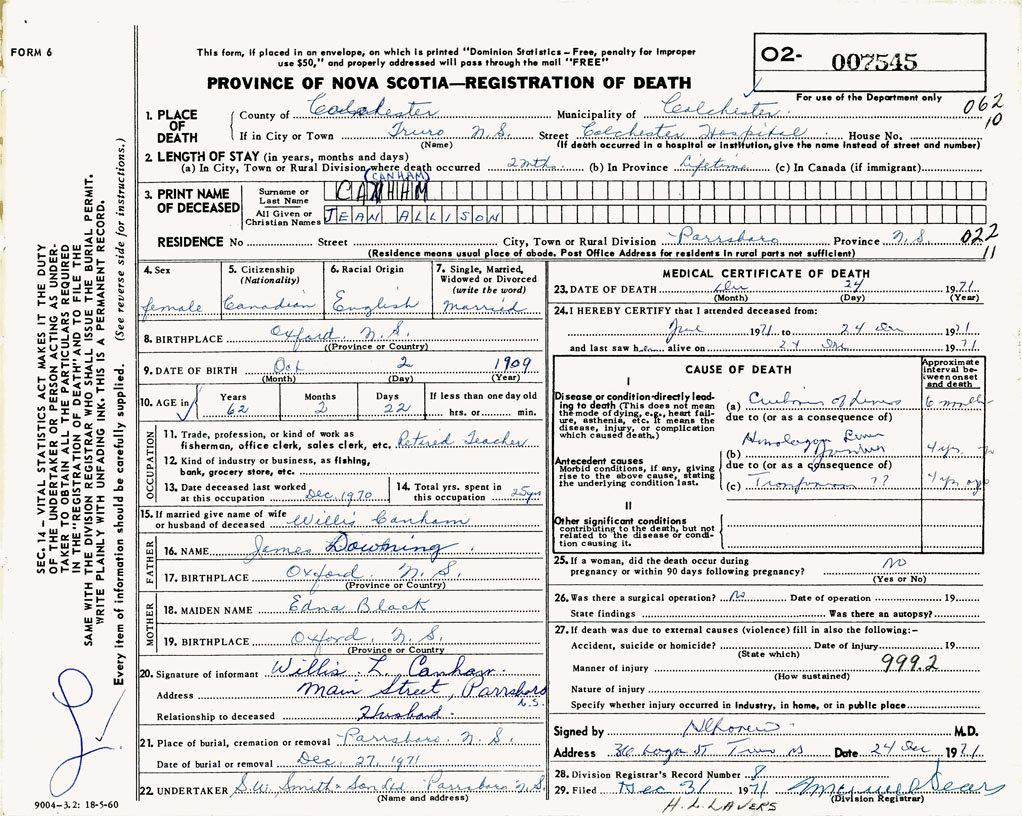 FORM 6
This form, if placed in an envelope, on which is printed "Dominion Statistics – Free, penalty for improper
use $50," and properly addressed will pass through the mail "FREE"
PROVINCE OF NOVA SCOTIA—REGISTRATION OF DEATH
02- 007545
For use of the Department only
062
10
1. PLACE OF DEATH
County of Colchester Municipality of Colchester
If in City or Town Truro N.S. Street Colchester Hospital House No.
(Name) (If death occurred in a hospital or institution, give the name instead of street and number)
2. LENGTH OF STAY (in years, months and days)
(a) In City, Town or Rural Division where death occurred 2 mths. (b) In Province Lifetime (c) In Canada (if immigrant)
(CANHAM)
3. PRINT NAME OF DECEASED
Surname or Last Name CANHAM
All Given or Christian Names JEAN ALLISON
RESIDENCE No Street City, Town or Rural Division Parrsboro Province N.S. 022
11
(Residence means usual place of abode. Post Office Address for residents in rural parts not sufficient)
4. Sex female
5. Citizenship (Nationality) Canadian
6. Racial Origin English
7. Single, Married, Widowed or Divorced (write the word) Married
8. BIRTHPLACE Oxford N.S.
(Province or Country)
9. DATE OF BIRTH Oct 2 1909
(Month) (Day) (Year)
10. AGE in Years 62 Months 2 Days 22 If less than one day old hrs. or min.
OCCUPATION
11. Trade, profession, or kind of work as
fisherman, office clerk, sales clerk, etc. Retired Teacher
12. Kind of industry or business, as fishing,
bank, grocery store, etc.
13. Date deceased last worked at this occupation Dec. 1970
14. Total yrs. spent in this occupation 25 yrs
15. If married give name of wife
or husband of deceased Willis Canham
FATHER
16. NAME James Downing
17. BIRTHPLACE Oxford N.S.
(Province or Country)
MOTHER
18. MAIDEN NAME Edna Black
19. BIRTHPLACE Oxford. N.S.
(Province or Country
20. Signature of informant Willis L. Canham
Address Main Street, Parrsboro
N.S.
Relationship to deceased Husband
21. Place of burial, cremation or removal Parrsboro N.S.
Date of burial or removal Dec. 27, 1971
22. UNDERTAKER S.W. Smith & Parrsboro N.S.
(Name and address)
MEDICAL CERTIFICATE OF DEATH
23. DATE OF DEATH Dec 24 1971
(Month) (Day) (Year)
24. I HEREBY CERTIFY that I attended deceased from:
June 1971 to 24 Dec 1971
and last saw her alive on 24 Dec 1971
CAUSE OF DEATH
Approximate interval between onset and death
I
Disease or condition directly leading to death (This does not mean the mode of dying, e.g., heart failure, asthenia, etc. It means the disease, injury, or complication which caused death.)
(a) of 6
due to (or as a consequence of)
Antecedent causes
Morbid conditions, if any, giving rise to the above cause, stating the underlying condition last.
(b) 4 yr.
due to (or as a consequence of)
(c) ?? 4 yr ago
II
Other significant conditions
contributing to the death, but not related to the disease or condition causing it.
25. If a woman, did the death occur during
pregnancy or within 90 days following pregnancy? No
(Yes or No)
26. Was there a surgical operation? No Date of operation 19
State findings Was there an autopsy?
27. If death was due to external causes (violence) fill in also the following:–
Accident, suicide or homicide? Date of injury 19
(State which)
Manner of injury 999.2
(How sustained)
Nature of injury
Specify whether injury occurred in industry, in home, or in public place
Signed by M.D.
Address Truro NS Date 24 Dec 1971
28. Division Registrar's Record Number 8
29. Filed Dec 31 1971
(Division Registrar)
H.L. LAVERS
SEC. 14 – VITAL STATISTICS ACT MAKES IT THE DUTY
OF THE UNDERTAKER OR PERSON ACTING AS UNDER-
TAKER TO OBTAIN ALL THE PARTICULARS REQUIRED
IN THE "REGISTRATION OF DEATH" AND TO FILE THE
SAME WITH THE DIVISION REGISTRAR WHO SHALL ISSUE THE BURIAL PERMIT.
WRITE PLAINLY WITH UNFADING INK. THIS IS A PERMANENT RECORD.
Every item of information should be carefully supplied. (See reverse side for instructions.)
9004–3.2: 18-5-60